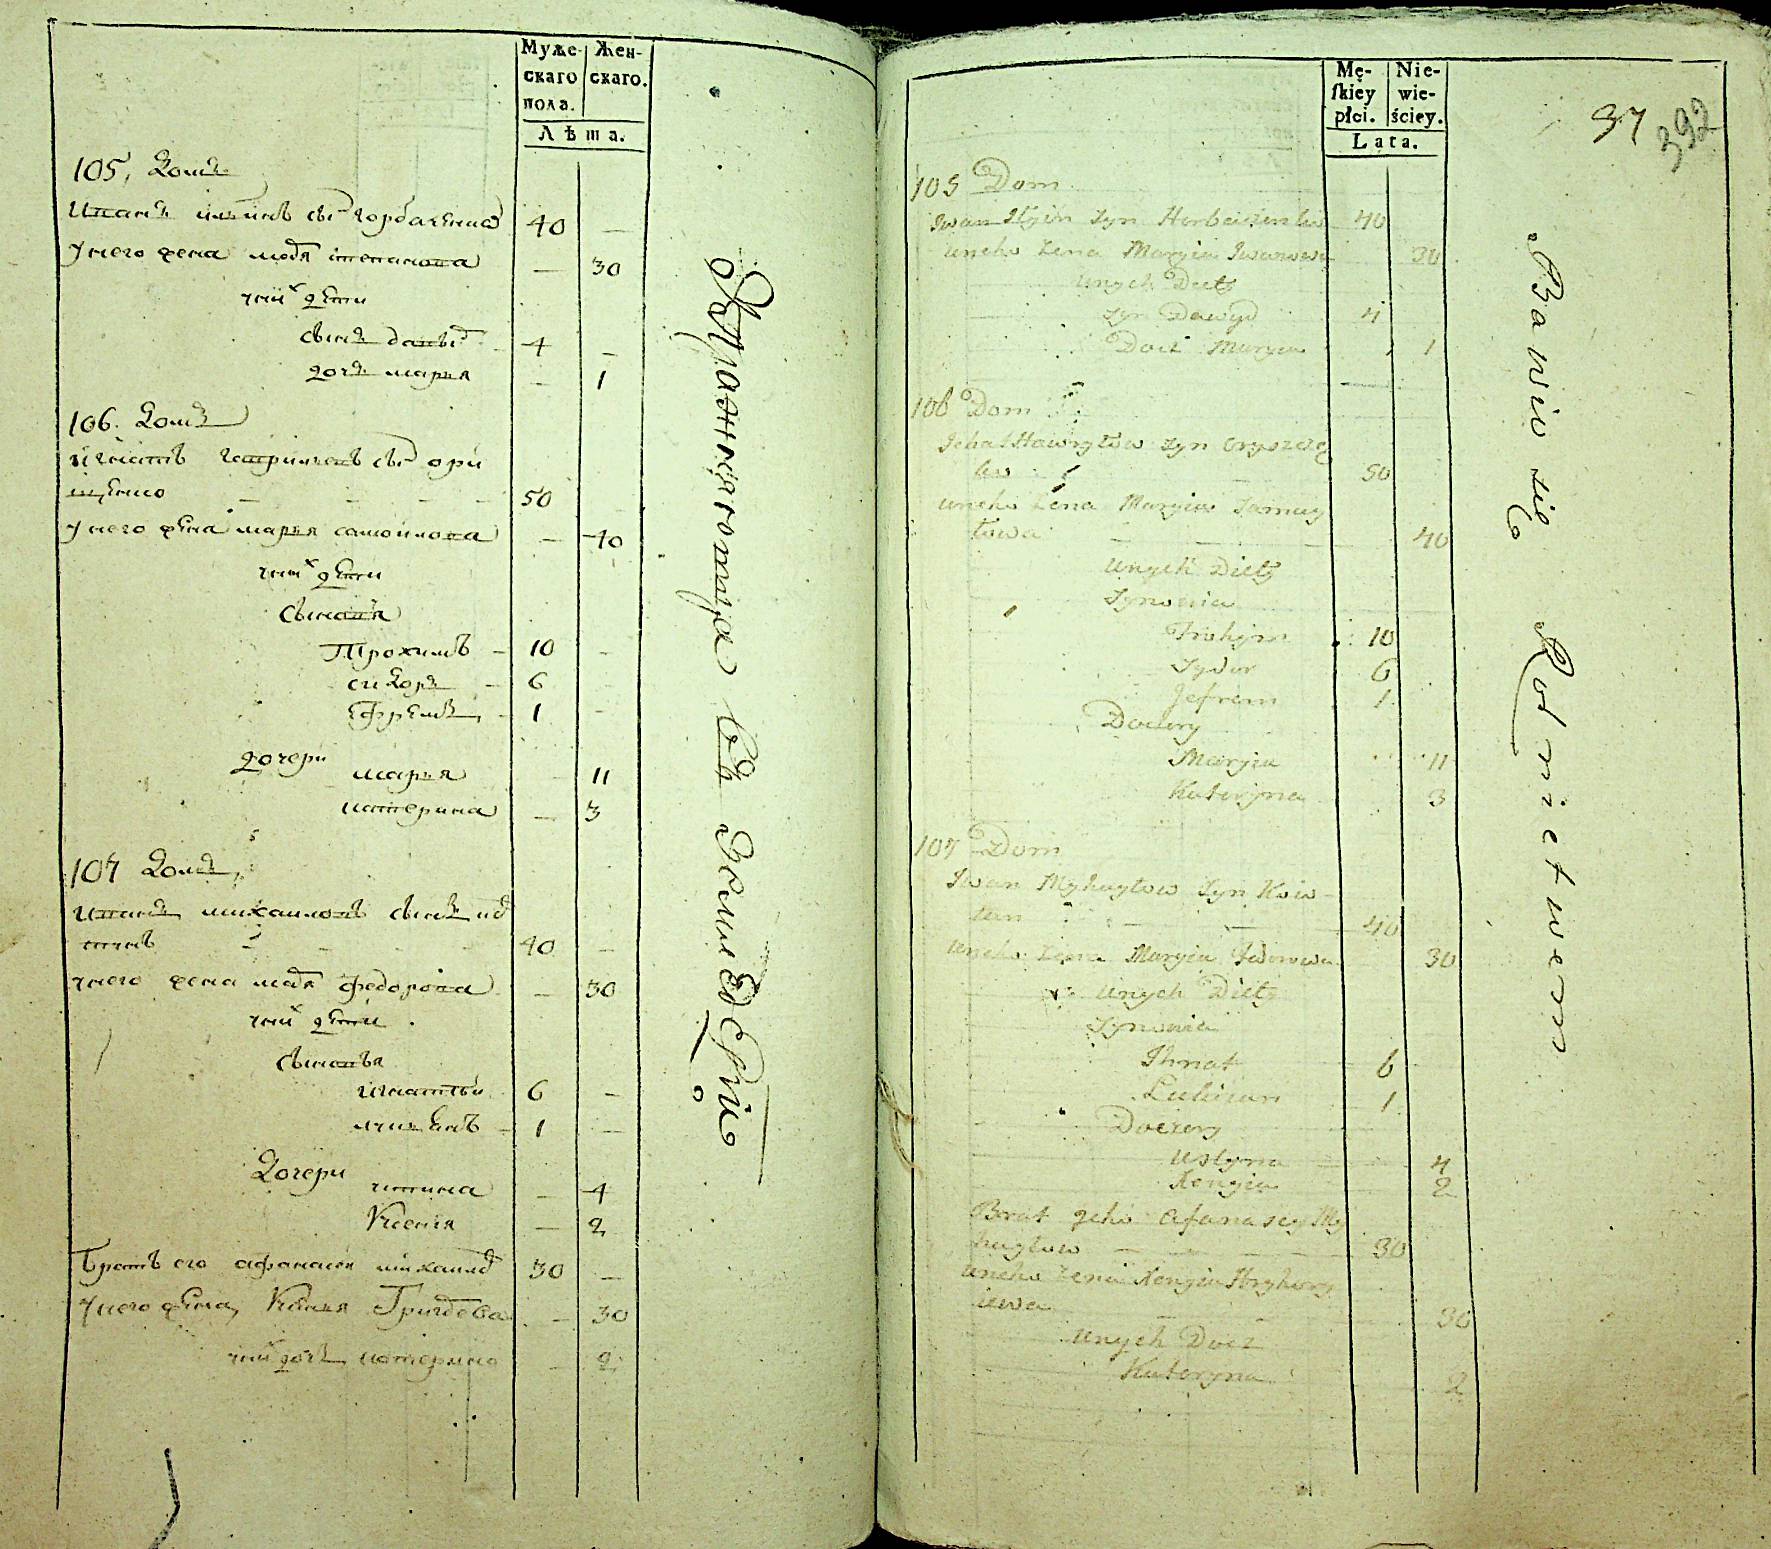 Муже- Жен-
скаго скаго.
пола.
Лѣта.
105, Домъ
Иванъ Ильинъ сынъ горбаченко 40 —
У него жена марья степанова — 30
у них дѣти
сынъ давыд 4 —
дочь марья — 1
106. Домъ
Игнатъ Гавриловъ сынъ ори
щенко — — — 50
У него жена марья самойлова — 40
у них дѣти
Сыновья
Трохимъ — 10 —
сидоръ — 6
Ефремъ — 1 —
дочери
марья — 11
катерина — 3
107 Домъ
Иванъ михаиловъ сынъ
40 —
у него жена марья федорова — 30
у них дѣти
Сыновья
игнатъй 6 —
лукьянъ 1 —
Дочери
устина — 4
Ксения — 2
Братъ его афанасей михаилов 30 —
У него жена Ксенья Григорева — 30
у них дочь катерина — 2
Упражняются въ земледелии
Mę- Nie-
skiey wie-
płci. ściey.
Lata.
37
392
105 Dom
Iwan Ilyin syn Horbaczenko 40
uneho żena Maryia Iwanowa 30
unych Diety
syn Dawyd 4
Docz Marya 1
106 Dom
Ihnat Hawryłow syn Oryszcze
ko 50
uneho żena Maryia Samuy
łowa — 40
unych Diety
Synowia
Trohym 10
Sydor 6
Jefrem 1
Doczery
Maryia 11
Kateryna 3
107 Dom
Iwan Myhayłow syn Kow
tun — 40
uneho żena Maryia Fedorowa 30
unych Diety
Synowia
Ihnat 6
Lukian 1
Doczery
Ustyna 4
Xenyia 2
Brat jeho Afanasey My
hayłow — 30
uneho żena Xenyia Hryhory
iewa 30
unych Docz
Kateryna 2
Bawio się Rolnictwem